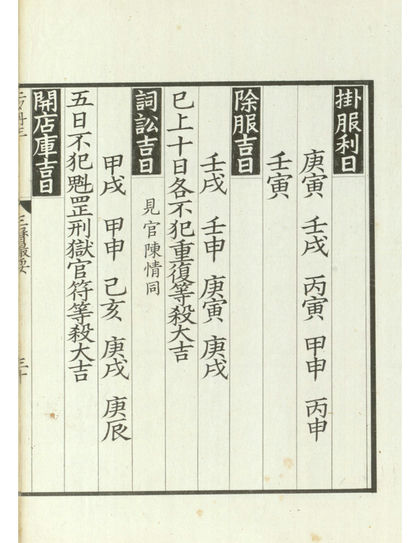 掛服利日
庚寅 壬戌 丙寅 甲申 丙申
壬寅
除服吉日
壬戌 壬申 庚寅 庚戌
已上十日各不犯重復等殺大吉
詞訟吉日 見官陳情同
甲戌 甲申 己亥 庚戌 庚辰
五日不犯魁罡刑獄官符等殺大吉
開店庫吉日